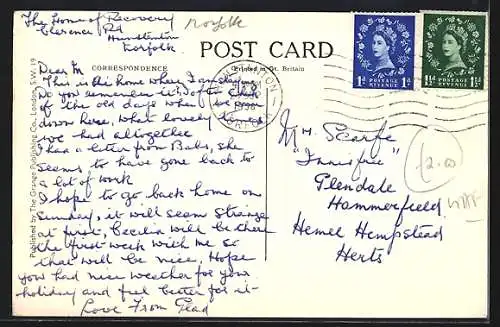 The Home of Recovery
Clarence Rd
Hunstanton
Norfolk
Norfolk
POST CARD
CORRESPONDENCE
Printed in Gt. Britain
Published by The Granger Publishing Co., London, S.W.19
Dear M
This is the home where I am
Do you remember it? I often think
of the old days when we
down here, what lovely times
we had altogether
I had a letter from Babs, she
seems to have gone back to
a lot of work
I hope to go back home on
Sunday, it will seem strange
at first, Cecilia will be there
the first week with me so
that will be nice, Hope
you had nice weather for your
holiday and feel better for it-
Love From Glad
NORFOLK
1D POSTAGE REVENUE 1D
1½D POSTAGE REVENUE 1½D
Mr. Scarfe
"Innisfree"
Glendale
Hammerfield
Hemel Hempstead
Herts